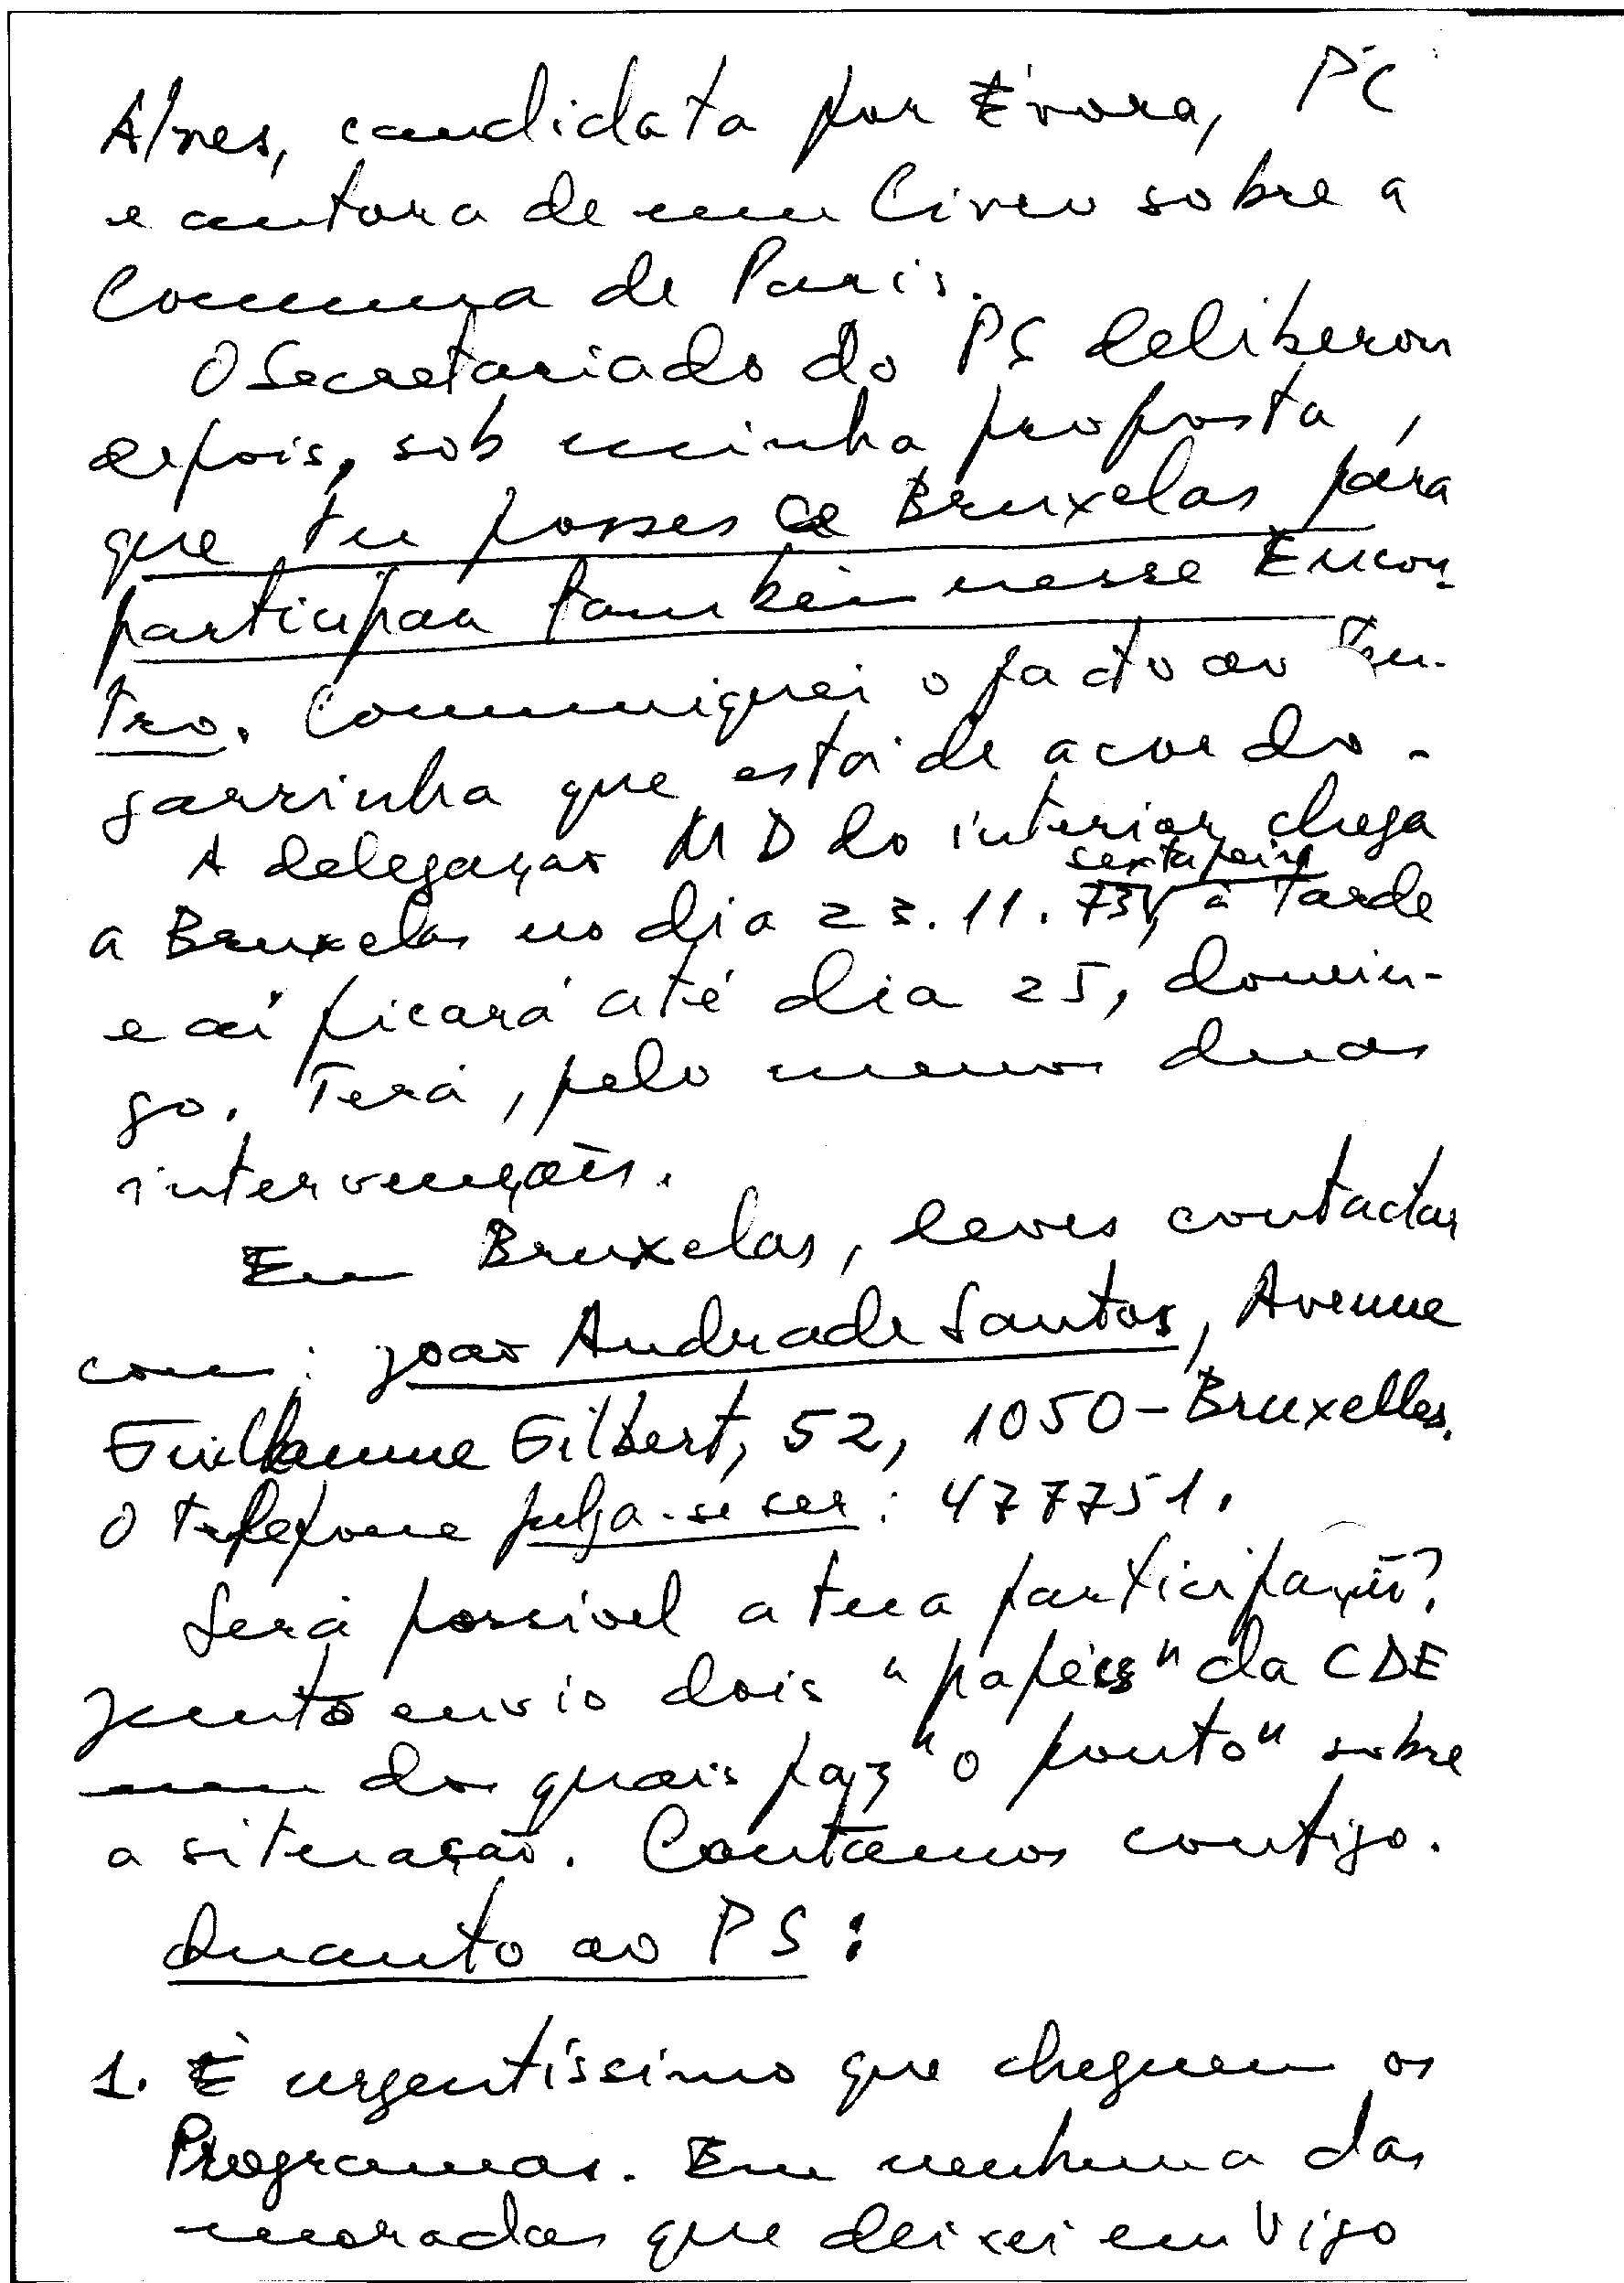 Alves, candidata por Évora, PC
e autora de um livro sobre a
Comuna de Paris.
O Secretariado do PS deliberou
depois, sob minha proposta,
que tu fosses a Bruxelas para
participar também nesse Encon-
tro. Comuniquei o facto ao Ten-
garrinha que está de acordo.
A delegação MD do interior chega
a Bruxelas no dia 23.11.73, sexta feira, à tarde
e aí ficará até dia 25, domin-
go. Terá, pelo menos duas
intervenções.
Em Bruxelas, deves contactar
com: João Andrade Santos, Avenue
Guillaume Gilbert, 52, 1050-Bruxelles.
O telefone julga-se ser: 477751.
Será possível a tua participação?
Junto envio dois "papéis" da CDE
num dos quais faz "o ponto" sobre
a situação. Contamos contigo.
Quanto ao PS:
1. É urgentíssimo que cheguem os
Programas. Em nenhuma das
moradas que deixei em Vigo